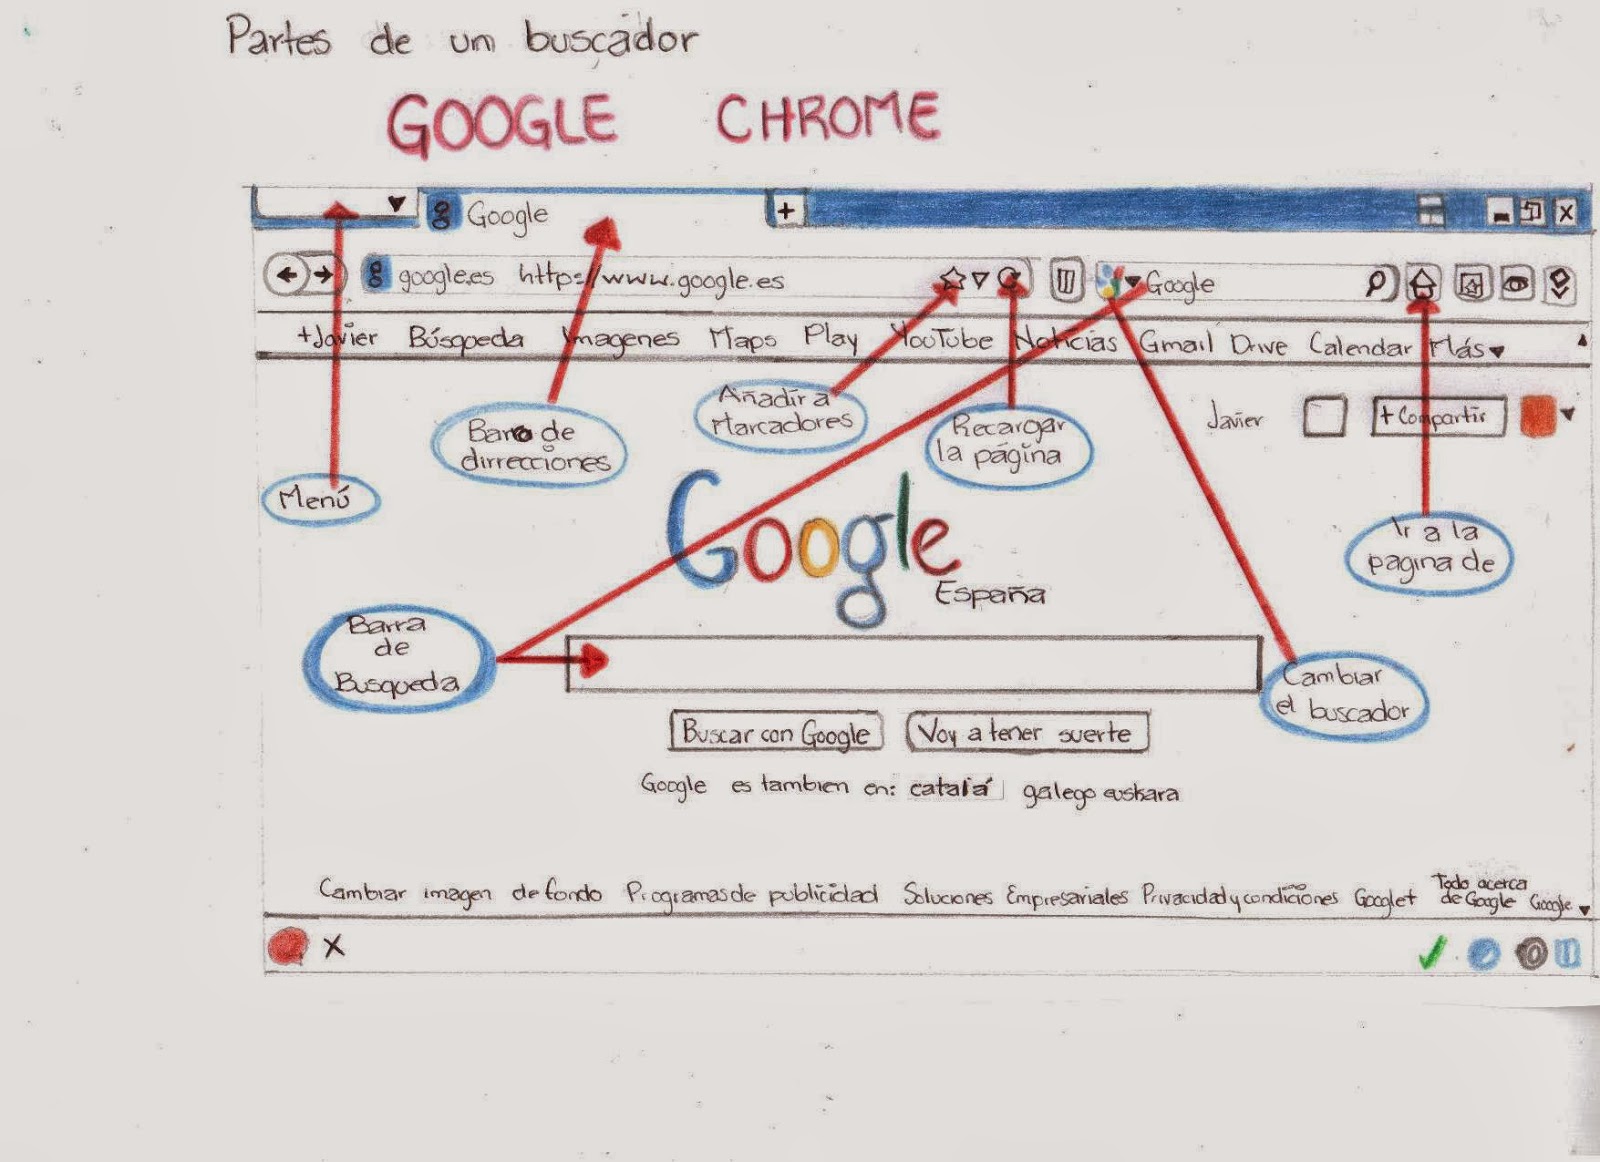 Partes de un buscador
GOOGLE CHROME
Google +
google.es http://www.google.es Google
+Javier Búsqueda Imagenes Maps Play YouTube Noticias Gmail Drive Calendar Más
Añadir a
Marcadores
Barra de
dirrecciones
Recargar
la página
Javier +Compartir
Menú
Google
España
Ir a la
pagina de
Barra
de
Busqueda
Cambiar
el buscador
Buscar con Google Voy a tener suerte
Google es tambien en: catalá galego euskara
Cambiar imagen de fondo Programas de publicidad Soluciones Empresariales Privacidad y condiciones Google+ Todo acerca
de Google Google